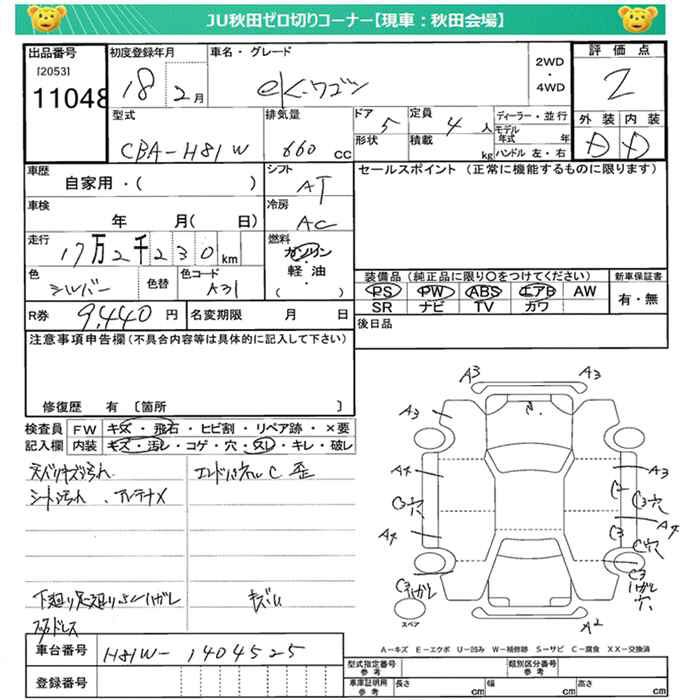 JU秋田ゼロ切りコーナー【現車：秋田会場】
出品番号
[2053]
11048
初度登録年月
18 2月
車名・グレード
eKワゴン
2WD
・
4WD
評価点
2
型式
CBA-H81W
排気量
660 cc
ドア 5
形状
定員 4人
積載 kg
ディーラー・並行
モデル年式 年
ハンドル 左・右
外装 内装
D D
車歴
自家用・( )
シフト
AT
セールスポイント (正常に機能するものに限ります)
車検
年 月( 日)
冷房
AC
走行
17万2千230km
燃料
ガソリン
・
軽油
( )
色
シルバー
色替
色コード
A31
装備品 (純正品に限り○をつけてください)
PS PW ABS エアB AW
SR ナビ TV カワ
新車保証書
有・無
R券 9,440円
名変期限 月 日
後日品
注意事項申告欄 (不具合内容等は具体的に記入して下さい)
修復歴 有 〔箇所 〕
検査員 FW キズ・飛石・ヒビ割・リペア跡・×要
記入欄 内装 キズ・汚レ・コゲ・穴・スレ・キレ・破レ
天バリキズ汚れ
エンドパネルC 歪
シート汚れ、アンテナ×
下廻り足廻りサビハゲレ
キズU
A3
A3
A3
A4
A3
C3穴
C2
C3穴
A4
A4
C3
C穴
C3
ハガレ
C3
ハガレ
穴
スペア
A2
A－キズ E－エクボ U－凹み W－補修跡 S－サビ C－腐食 XX－交換済
車台番号 H81W-1404525
登録番号
型式指定番号
参考
類別区分番号
参考
車庫証明用
参考
長さ cm 幅 cm 高さ cm